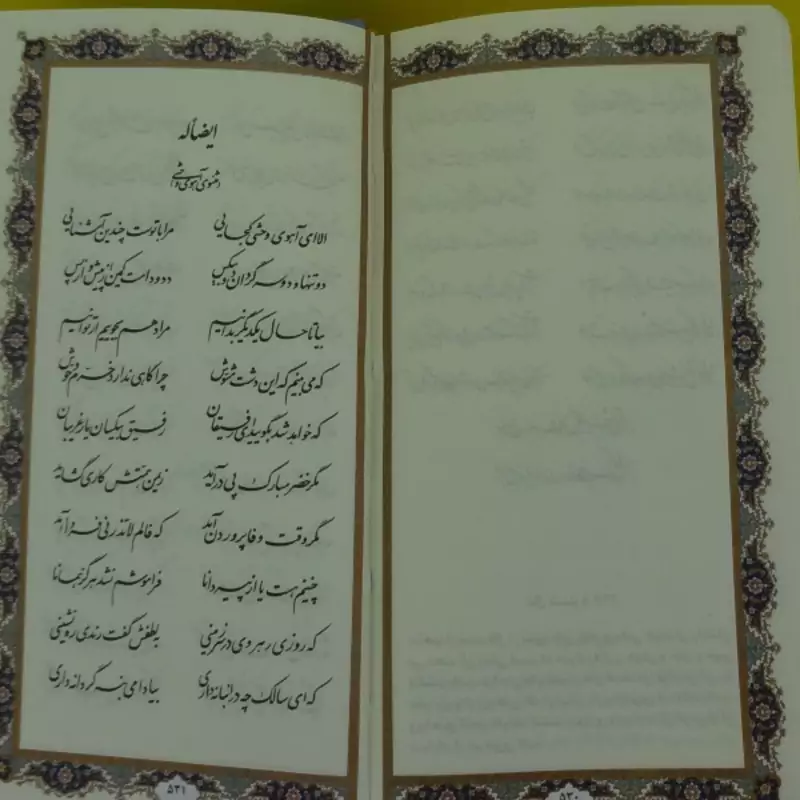 ایضاًله
(مثنوی آهوی وحشی)
الا ای آهوی وحشی کجایی مرا با توست چندین آشنایی
دو تنها و دو سرگردان و بیکس دد و دامت کمین از پیش و از پس
بیا تا حال یکدیگر بدانیم مراد هم بجوییم ار توانیم
که می‌بینم که این دشت مشوش چراگاهی ندارد خرم و خوش
که خواهد شد بگویید ای رفیقان رفیق بیکسان یار غریبان
مگر خضر مبارک پی درآید ز یمن همتش کاری گشاید
مگر وقت وفا پروردن آمد که فالم لا تذرنی فرداً آمد
چنینم هست یاد از پیر دانا فراموشم نشد هرگز همانا
که روزی رهروی در سرزمینی به لطفش گفت رندی ره‌نشینی
که ای سالک چه در انبانه داری بیا دامی بنه گر دانه داری
۵۳۱
۵۳۰